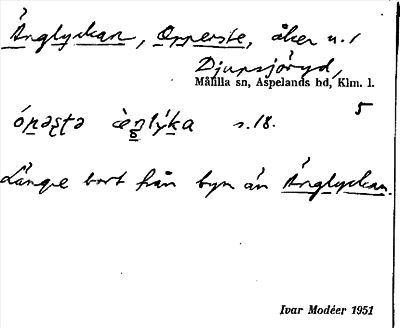 Änglyckan, Opperste, åker u. /
Djupsjöryd,
Målilla sn, Aspelands hd, Klm. l.
5
s. 18.
Längre bort från byn än Änglyckan.
Ivar Modéer 1951